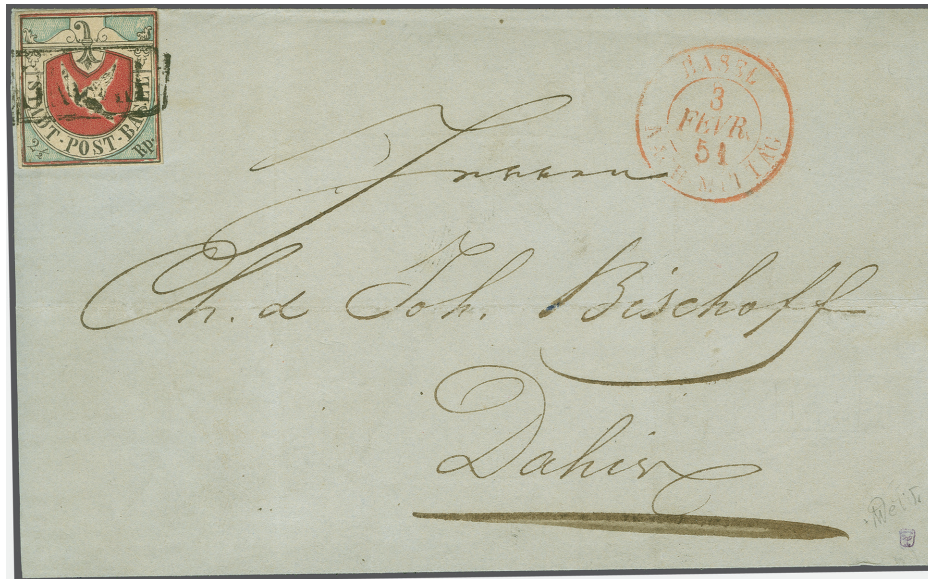 STADT-POST-BASEL
2½ Rp.
BASEL
3
FEVR.
51
NACHMITTAG
Herrn
Ch. d Joh. Bischoff
Dahier